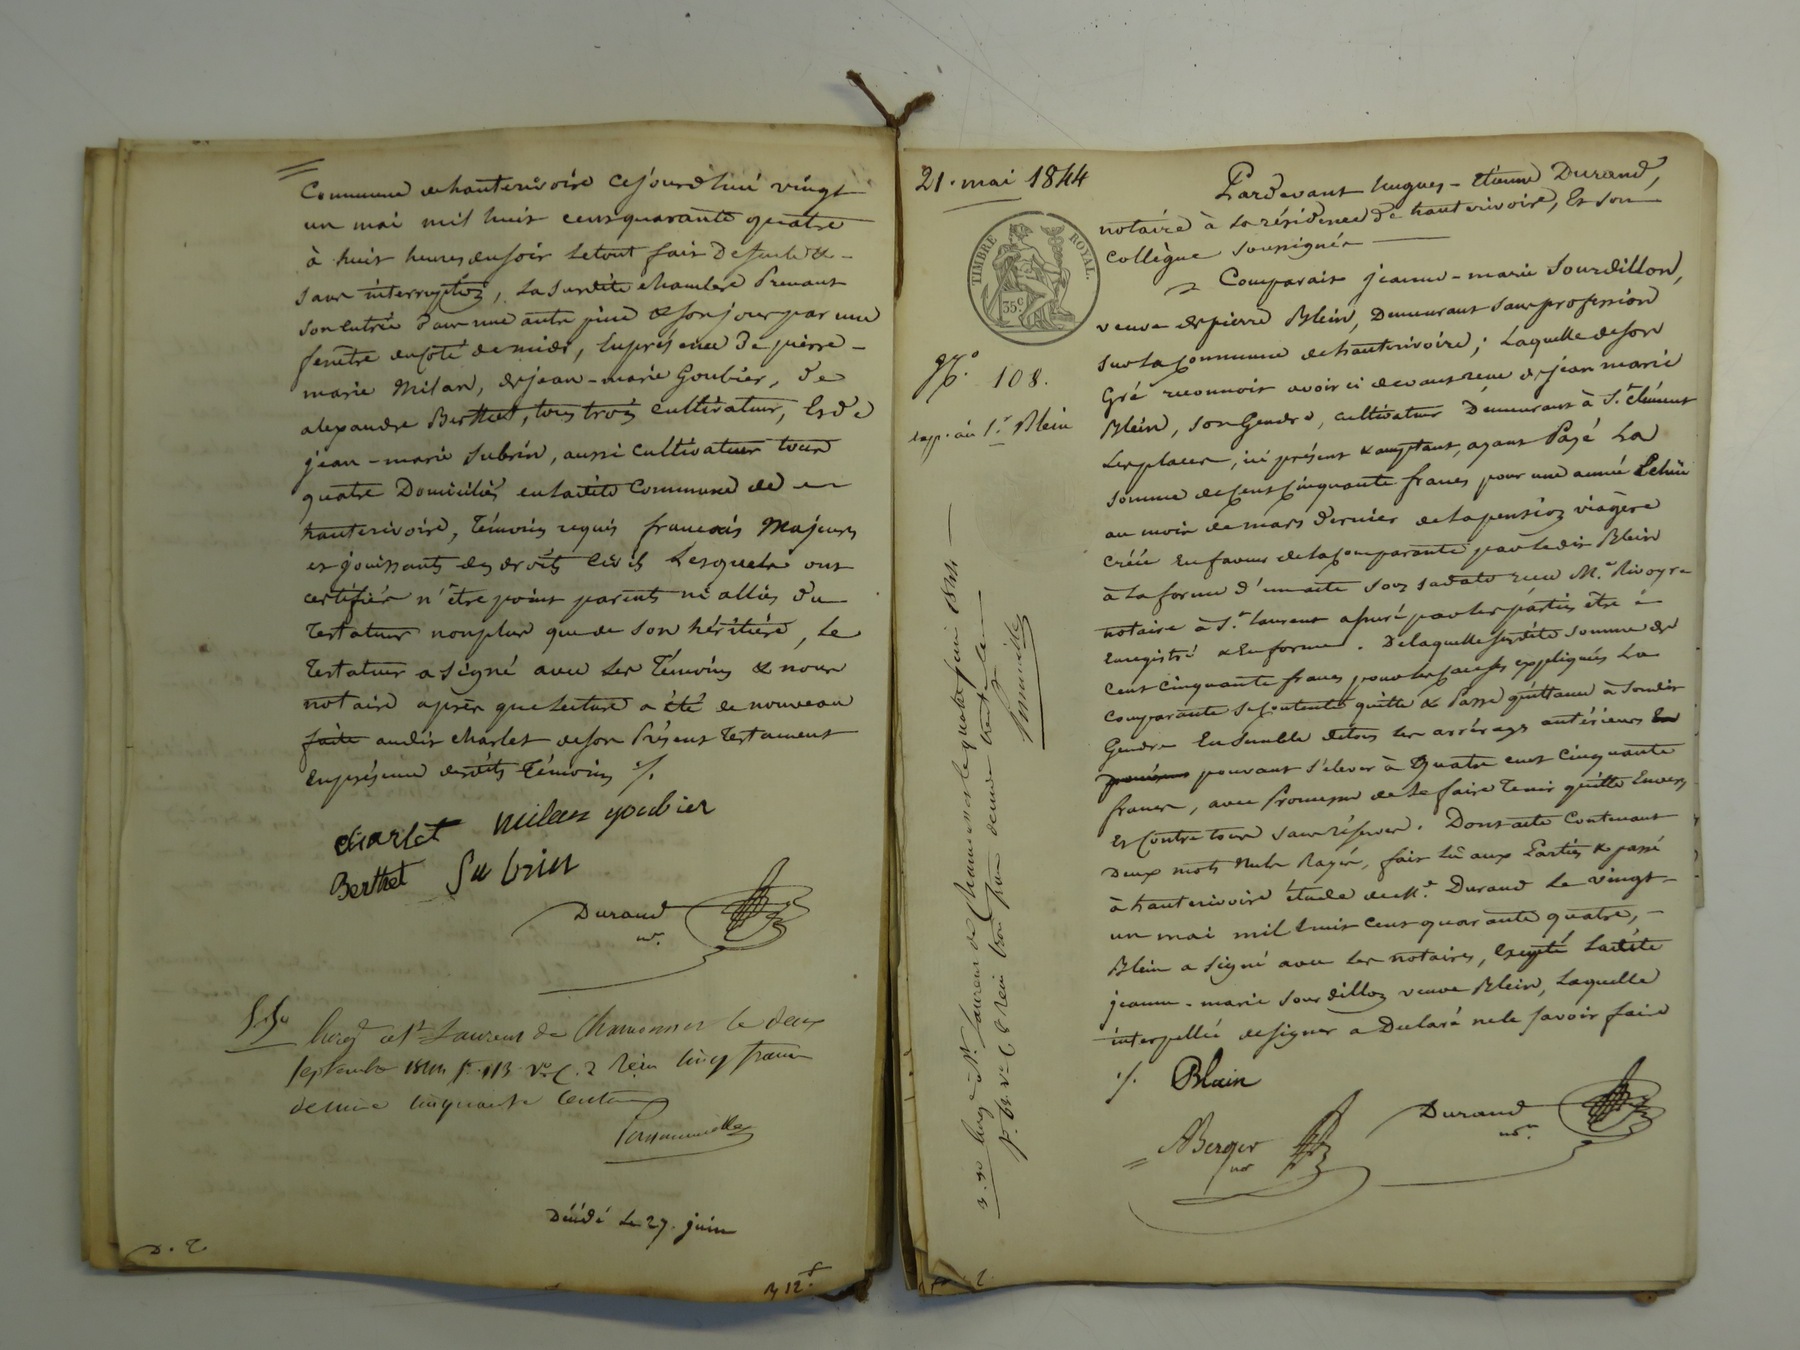 Commune de hauterivoire cejourd'hui vingt
un mai mil huit cent quarante quatre
à huit heures du soir le tout fait de suite &
sans interruption, la susdite chambre Prenant
son entrée dans une autre pièce & son jour par une
fenêtre du coté de midi, En présence de pierre-
marie Milan, de jean-marie Goubier, de
alexandre Berthet, tous trois cultivateurs, Et de
jean-marie Subrin, aussi cultivateur tous
quatre Domiciliés en ladite Commune de
hauterivoire, témoins requis français Majeurs
et jouissants des droits civils Lesquels ont
certifiés n'être point parents ni alliés du
Testateur non plus que de son héritière, Le
Testateur a signé avec les Témoins & nous
notaire après que lecture a été de nouveau
faite audit charlet de son Présent Testament
En présence desdits Témoins ./.
charlet milan goubier
Berthet Subrin
Durand
nre.
Enreg. à St Laurent de Chamousset le deux
septembre 1844 fo. 113 Vo. C. 2 Reçu cinq francs
decime cinquante centimes
Décédé Le 27. juin
D. 2.
21. mai 1844
TIMBRE ROYAL.
35 c
No. 108.
Exp. au Sr. Blein
Enreg. à St. Laurent de Chamousset le quatre juin 1844
Pardevant hugues-Etienne Durand,
notaire à la résidence de hauterivoire, Et son
collègue soussignés
Comparait jeanne-marie Sourdillon,
veuve de pierre Blein, Demeurant sans profession
sur la Commune de hauterivoire; Laquelle de son
Gré reconnoit avoir ci devant reçu de jean marie
Blein, son Gendre, cultivateur Demeurant à St. clément
Les places, ici présent & acceptant, ayant Payé La
somme de Cent Cinquante francs pour une année Echüe
au mois de mars dernier de la pension viagère
créée En faveur de la Comparante par ledit Blein
à la forme d'un acte sous sa date reçu Me. Rivoyre
notaire à St. laurent assuré par les parties être
Enregistré & En forme. De laquelle susdite somme de
Cent Cinquante francs pour les Causes expliquées La
Comparante se Contente quitte & Passe quittance à Sondit
Gendre Ensemble de tous les arrérages antérieurs En
pouvant s'élever à Quatre cent cinquante
francs, avec Promesse de le faire Tenir quitte Envers
Et Contre tous sans réserves. Dont acte Contenant
Deux mots Nuls Rayés, fait lû aux Parties & passé
à hauterivoire étude de Me. Durand Le vingt-
un mai mil huit cent quarante quatre, -
Blein a signé avec les notaires, Excepté Ladite
jeanne-marie Sourdillon veuve Blein, Laquelle
interpellée de signer a Declaré ne le savoir faire
./. Blain
Durand
nre.
ABerger
nre